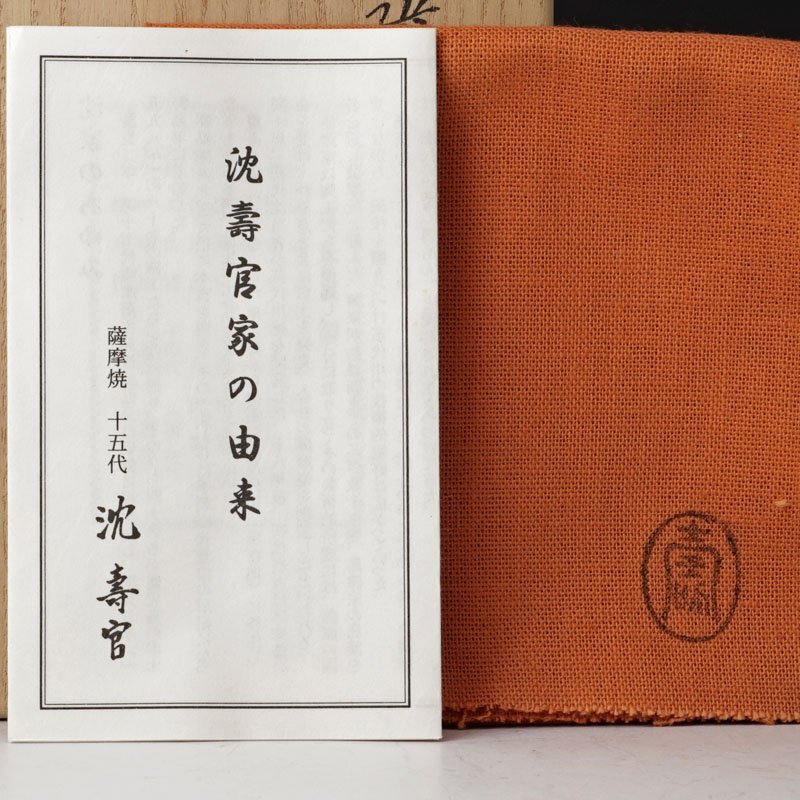 沈壽官家の由来
薩摩焼 十五代 沈壽官